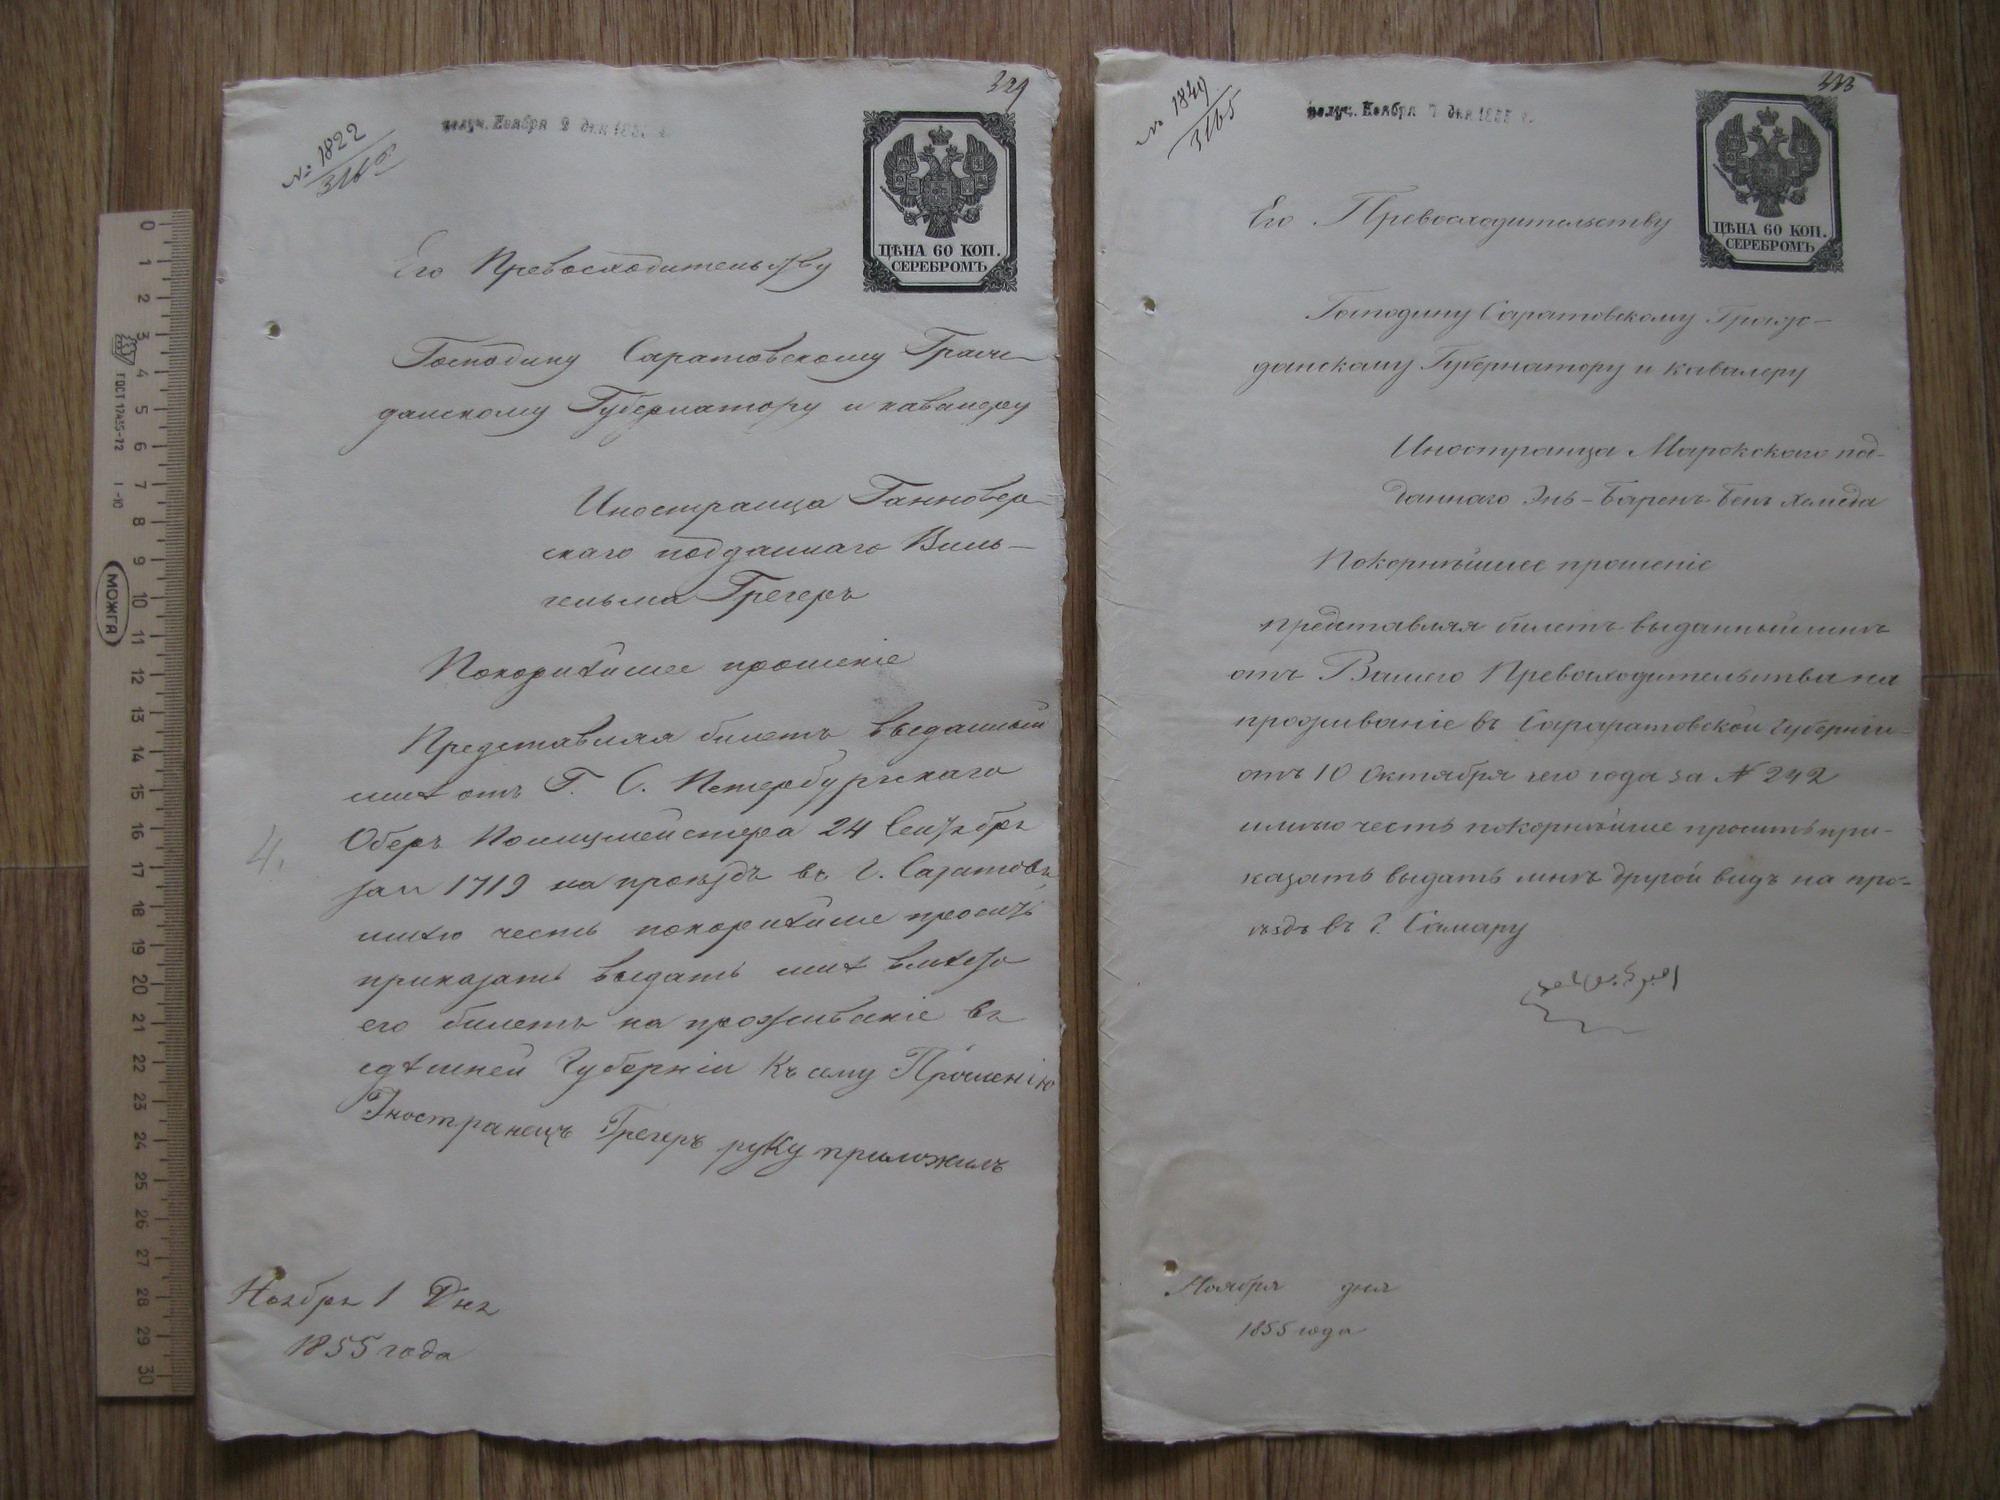 № 1822
получ. Ноября 2 дня 1855 г.
ЦѢНА 60 КОП.
СЕРЕБРОМЪ
Его Превосходительству
Господину Саратовскому Граж-
данскому Губернатору и кавалеру
Иностранца Ганновер-
скаго подданнаго Виль-
гельма Грегеръ
Покорнѣйшее прошеніе
Представляя билетъ выданный
мнѣ отъ Г. С. Петербургскаго
Оберъ Полицмейстера 24 Сентября
за № 1719 на проѣздъ въ г. Саратовъ,
имѣю честь покорнѣйше просить
приказать выдать мнѣ вмѣсто
его билетъ на проживаніе въ
здѣшней Губерніи Къ сему Прошенію
Иностранецъ Грегеръ руку приложилъ
4.
Ноября 1 Дня
1855 года
0 1 2 3 4 5 6 7 8 9 10 11 12 13 14 15 16 17 18 19 20 21 22 23 24 25 26 27 28 29 30
ГОСТ 17435-72
МОЖГА
№ 1849
3165
получ. Ноября 7 дня 1855 г.
333
ЦѢНА 60 КОП.
СЕРЕБРОМЪ
Его Превосходительству
Господину Саратовскому Граж-
данскому Губернатору и кавалеру
Иностранца Марокскаго под-
даннаго Эль-Барекъ Бенъ Хамеда
Покорнѣйшее прошеніе
представляя билетъ выданный мнѣ
отъ Вашего Превосходительства на
проживаніе въ Сараратовской губерніи
отъ 10 Октября сего года за № 242
имѣю честь покорнѣйше просить при-
казать выдать мнѣ другой видъ на про-
ѣздъ въ г. Самару
Ноября дня
1855 года